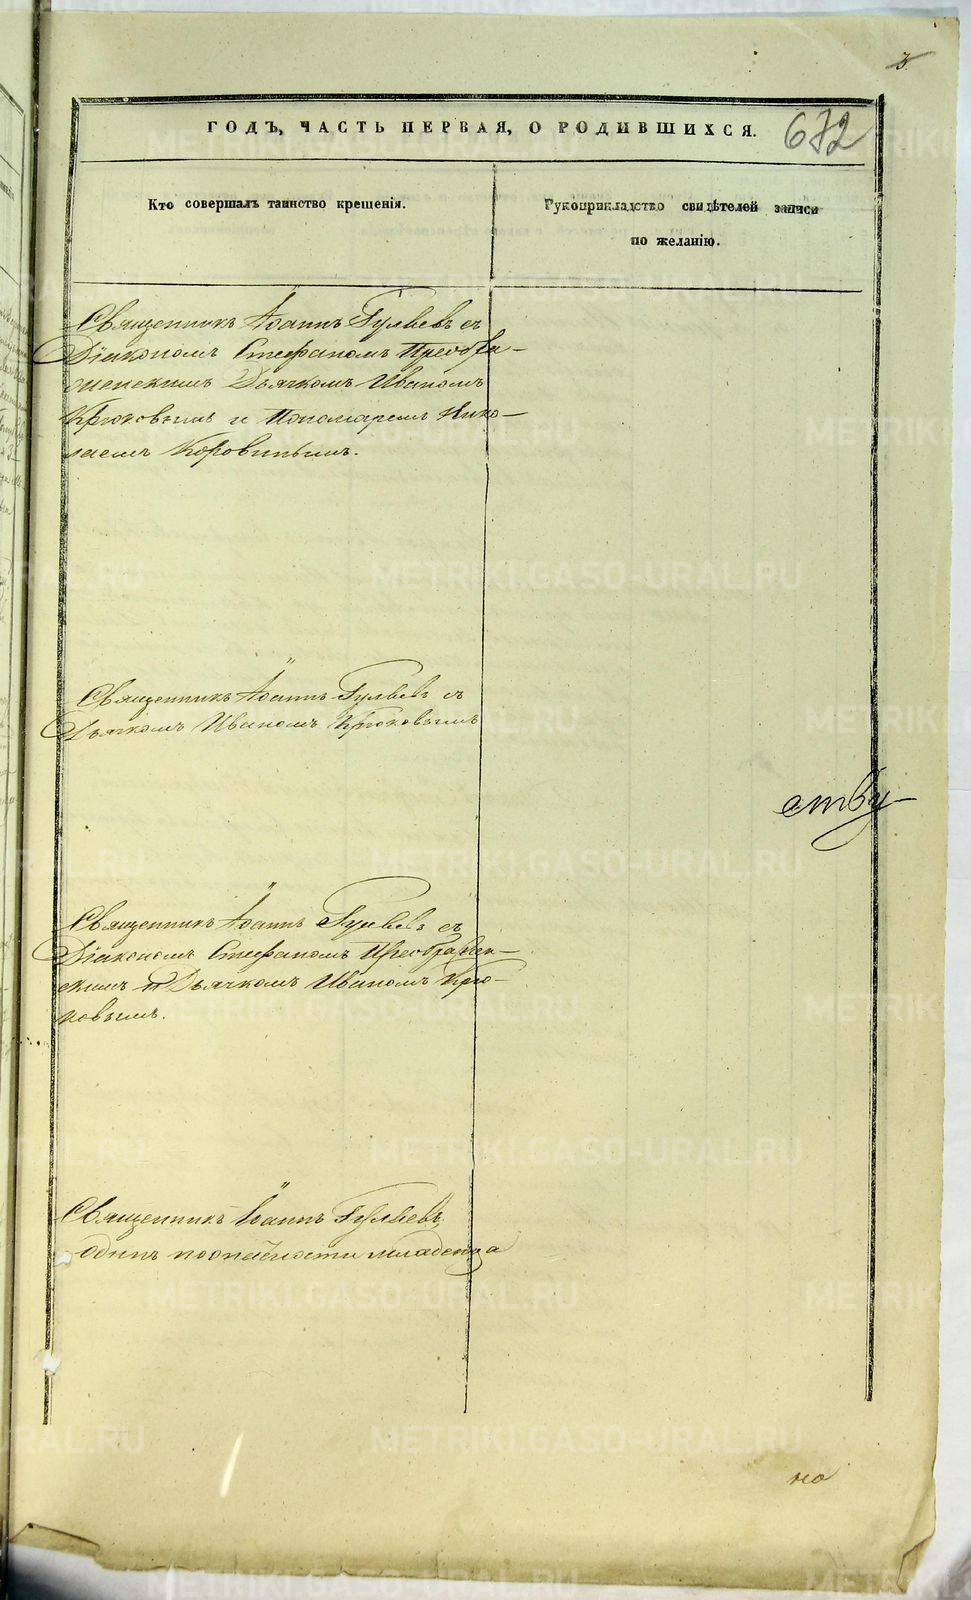 3.
ГОДЪ, ЧАСТЬ ПЕРВАЯ, О РОДИВШИХСЯ.
672
Кто совершалъ таинство крещенія.
Рукоприкладство свидѣтелей записи
по желанію.
Священникъ Іоаннъ Гуляевъ съ
Діакономъ Стефаномъ Преобра-
женскимъ Дьячкомъ Иваномъ
Крюковымъ и Пономаремъ Нико-
лаемъ Коровинымъ.
Священникъ Іоаннъ Гуляевъ съ
Дьячкомъ Иваномъ Крюковымъ
ству
Священникъ Іоаннъ Гуляевъ съ
Діакономъ Стефаномъ Преображен-
скимъ и Дьячкомъ Иваномъ Крю-
ковымъ.
Священникъ Іоаннъ Гуляевъ
одинъ поопасности младенца
но
METRIKI.GASO-URAL.RU